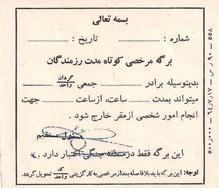 بسمه تعالی
شماره : تاریخ :
برگه مرخصی کوتاه مدت رزمندگان
بدینوسیله برادر جمعی گردان واحد
میتواند بمدت ساعت، از ساعت جهت
انجام امور شخصی از مقر خارج شود .
مسئول
این برگه فقط در منطقه جنگی اعتبار دارد .
توجه: این برگه باید بلافاصله بعد از مرخصی به کارگزینی واحد تحویل گردد.